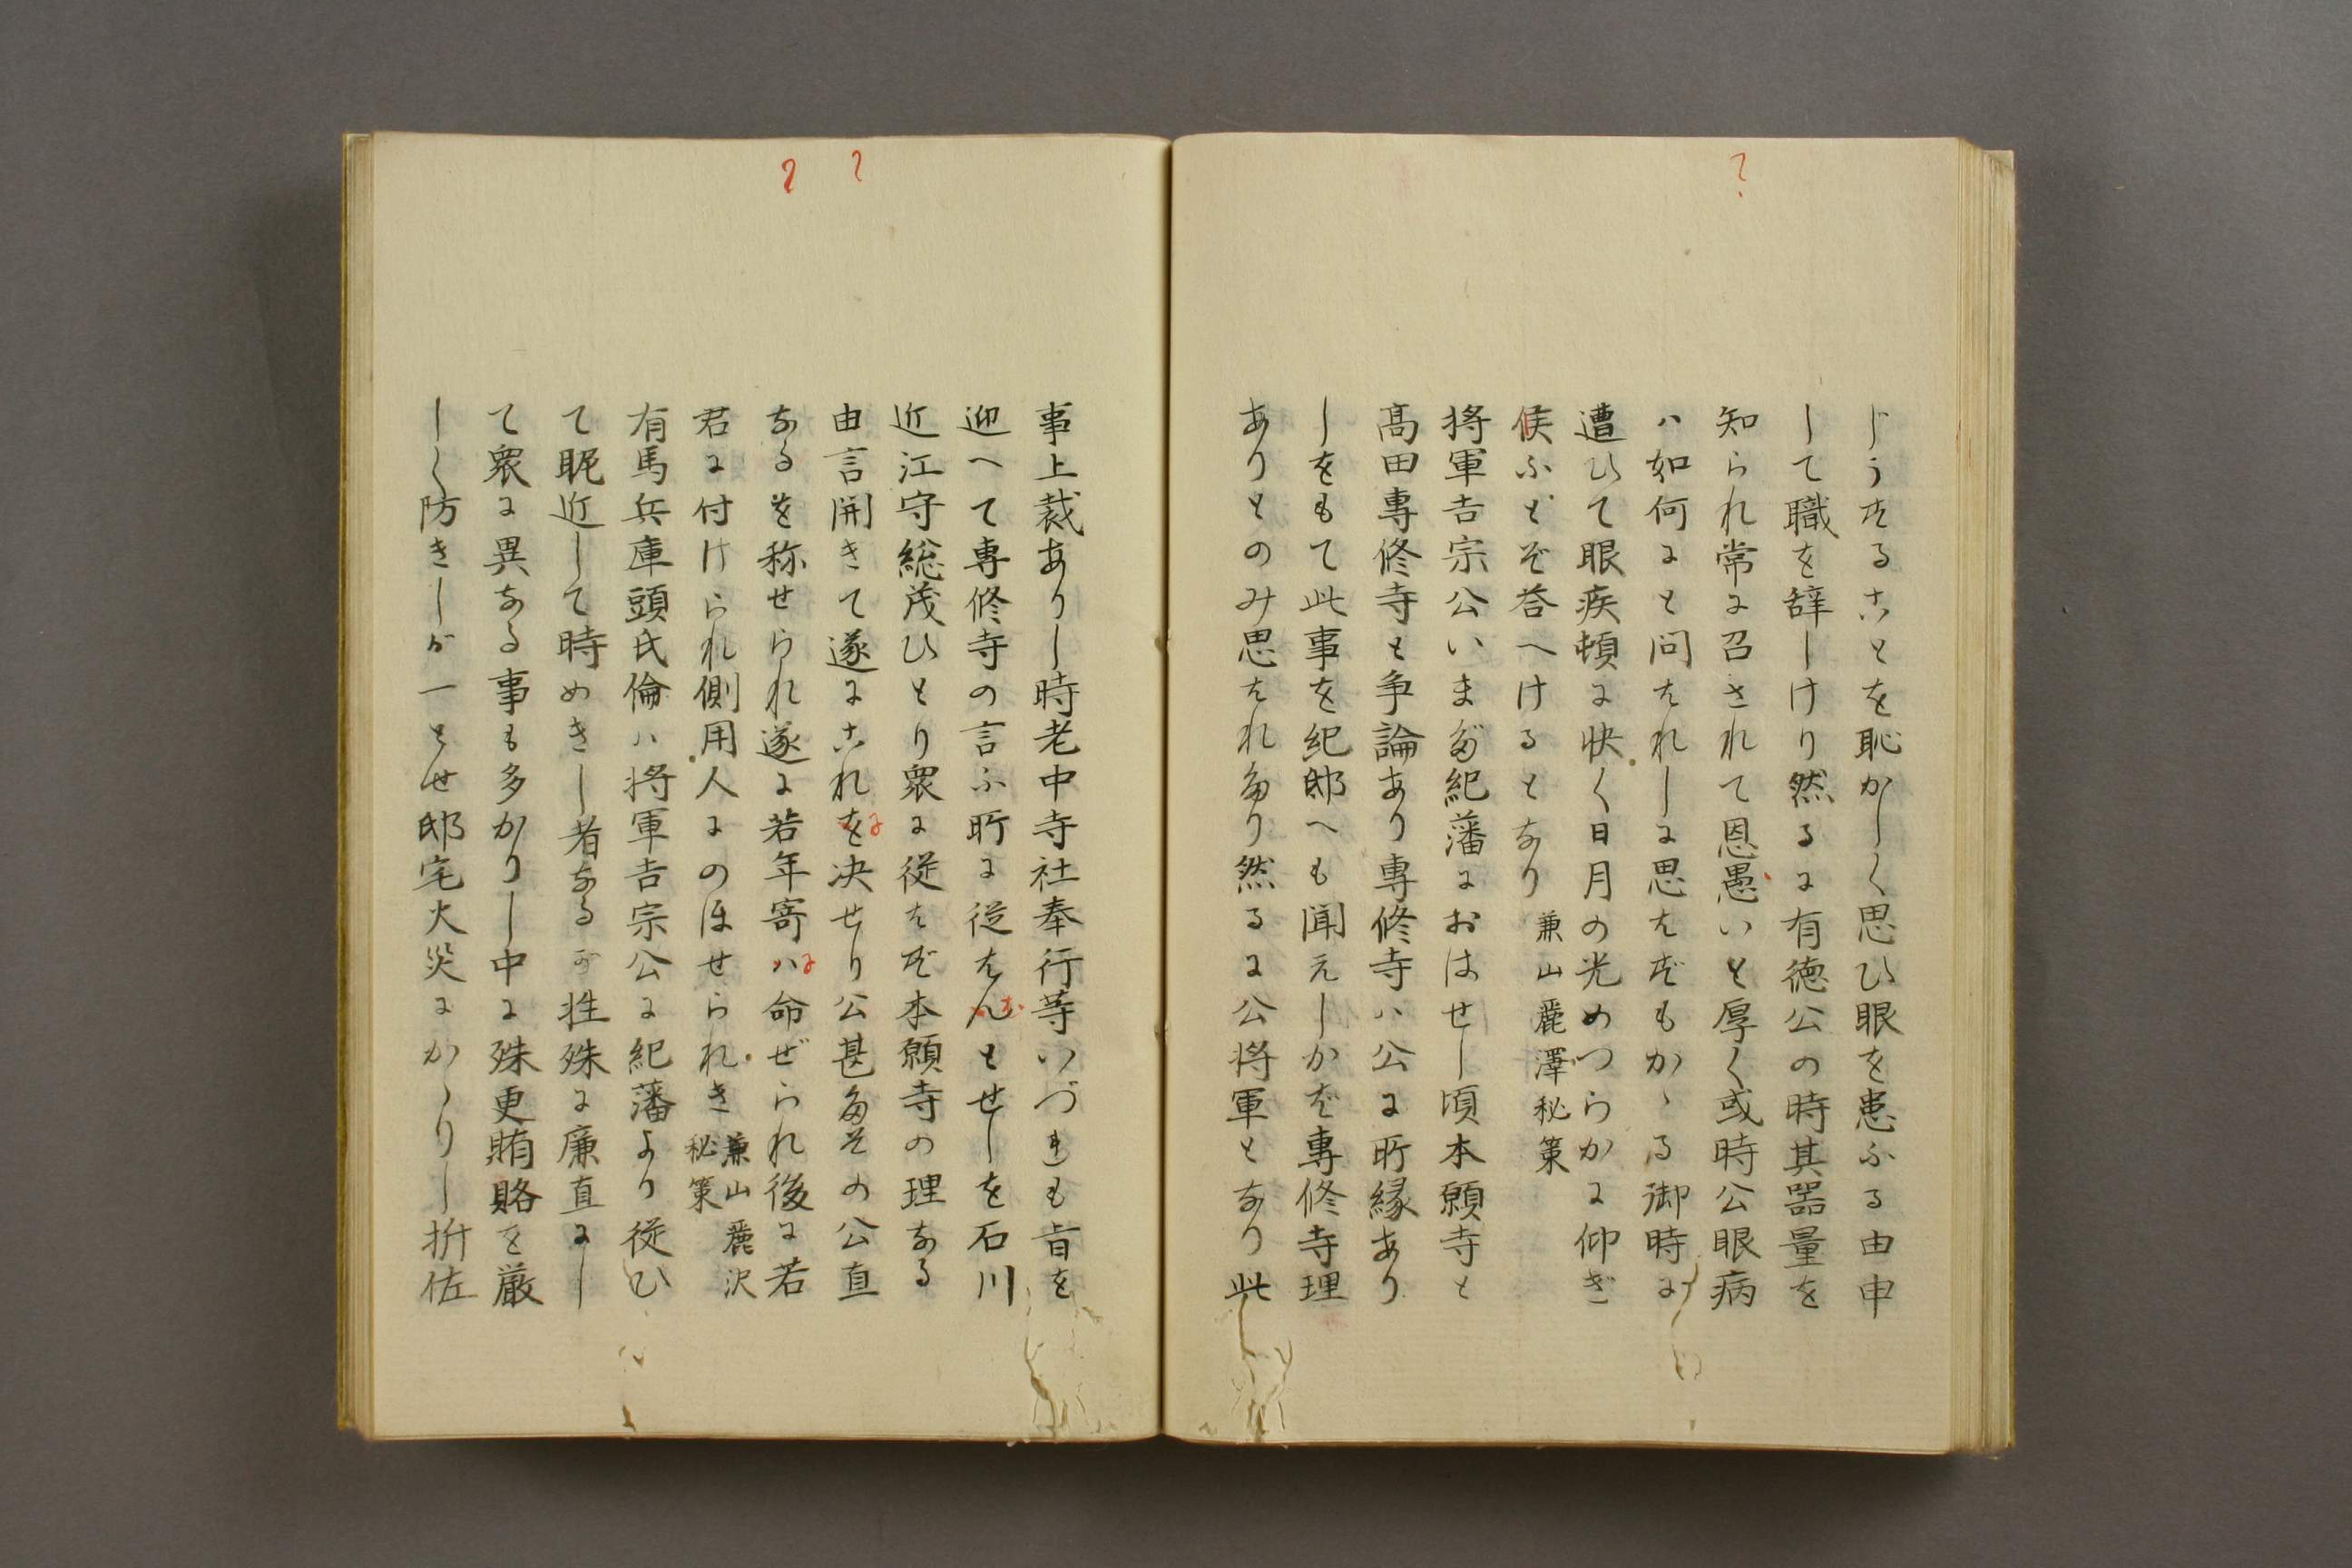 じうなることを恥かしく思ひ眼を患ふる由申
して職を辞しけり然るに有徳公の時其器量を
知られ常に召されて恩愚いと厚く或時公眼病
ハ如何にと問はれしに思はずもかゝる御時に
遭ひて眼疾頓に快く日月の光めつらかに仰ぎ
侯ふとぞ答へけるとなり兼山麗澤秘策
将軍吉宗公いまだ紀藩におはせし頃本願寺と
髙田専修寺と争論あり専修寺ハ公に所縁あり
しをもて此事を紀邸へも聞えしかば専修寺理
ありとのみ思はれたり然るに公将軍となり此
事上裁ありし時老中寺社奉行等いづれも旨を
迎へて専修寺の言ふ所に従はんとせしを石川
近江守総茂ひとり衆に従はず本願寺の理なる
由言開きて遂にこれを决せり公甚だその公直
なるを称せられ遂に若年寄ハ命ぜられ後に若
君に付けられ側用人にのぼせられき兼山麗沢
秘策
有馬兵庫頭氏倫ハ将軍吉宗公に紀藩より従ひ
て昵近して時めきし者なるが性殊に廉直にし
て衆に異なる事も多かりし中に殊更賄賂を厳
しく防きしが一とせ邸宅火災にかゝりし折佐